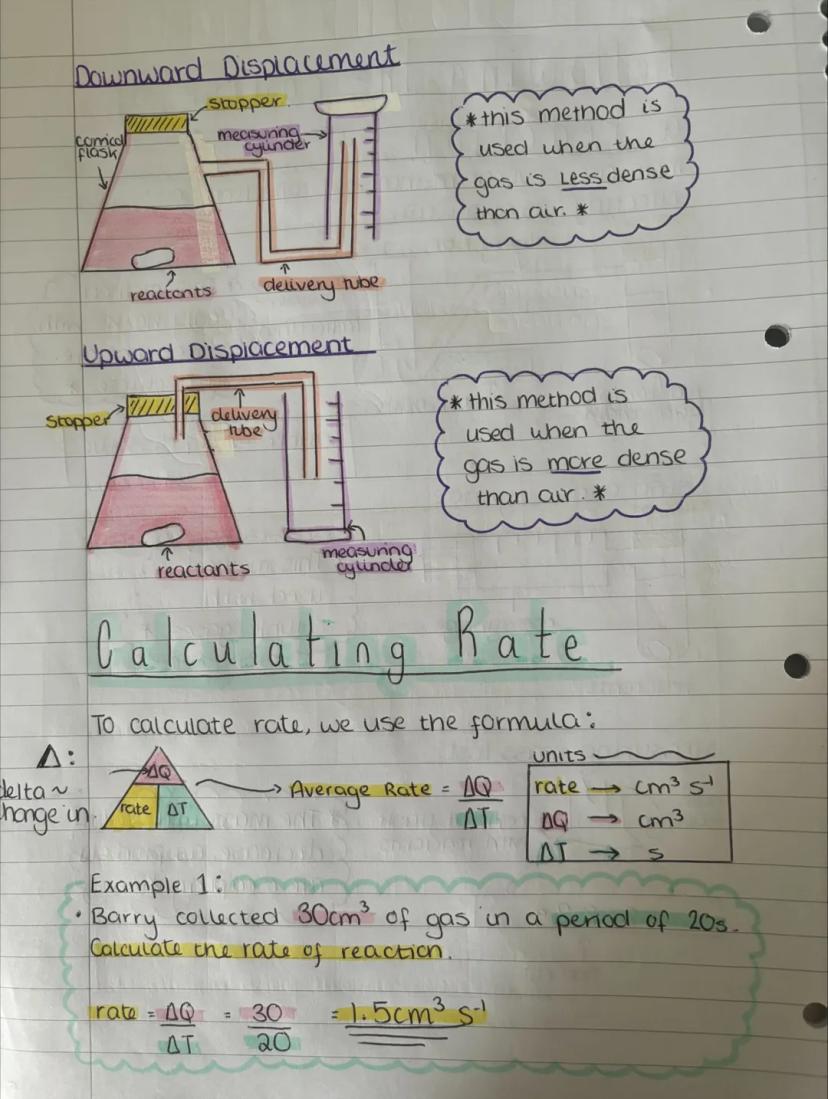 Downward Displacement
stopper
conical
flask
measuring
cylinder
reactants
delivery tube
*this method is
used when the
gas is Less dense
than air. *
Upward Displacement
stopper
delivery
tube
reactants
measuring
cylinder
* this method is
used when the
gas is more dense
than air. *
Calculating Rate
To calculate rate, we use the formula:
Δ:
delta ~
hange in
ΔQ
rate ΔT
Average Rate = ΔQ
ΔT
units
rate → cm³ s⁻¹
ΔQ → cm³
ΔT → s
Example 1:
• Barry collected 30cm³ of gas in a period of 20s.
Calculate the rate of reaction.
rate = ΔQ = 30 = 1.5cm³ s⁻¹
ΔT 20